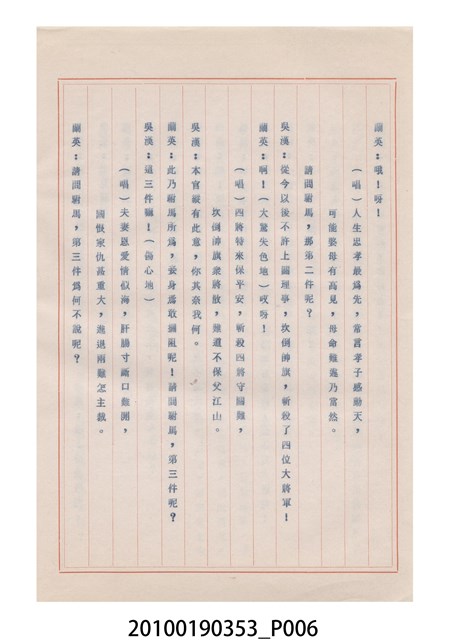 蘭英：哦！呀！
（唱）人生忠孝最爲先，常言孝子感動天，
可能婆母有高見，母命難違乃當然。
請問駙馬，那第二件呢？
吳漢：從今以後不許上關理事，坎倒帥旗，斬殺了四位大將軍！
蘭英：啊！（大驚失色地）哎呀！
（唱）四將特來保平安，斬殺四將守關難，
坎倒帥旗衆將散，難道不保父江山。
吳漢：本官縱有此意，你其奈我何。
蘭英：此乃駙馬所爲，妾身焉敢攔阻呢！請問駙馬，第三件呢？
吳漢：這三件嘛！（傷心地）
（唱）夫妻恩愛情似海，肝腸寸斷口難開，
國恨家仇甚重大，進退兩難怎主裁。
蘭英：請問駙馬，第三件爲何不說呢？
20100190353_P006